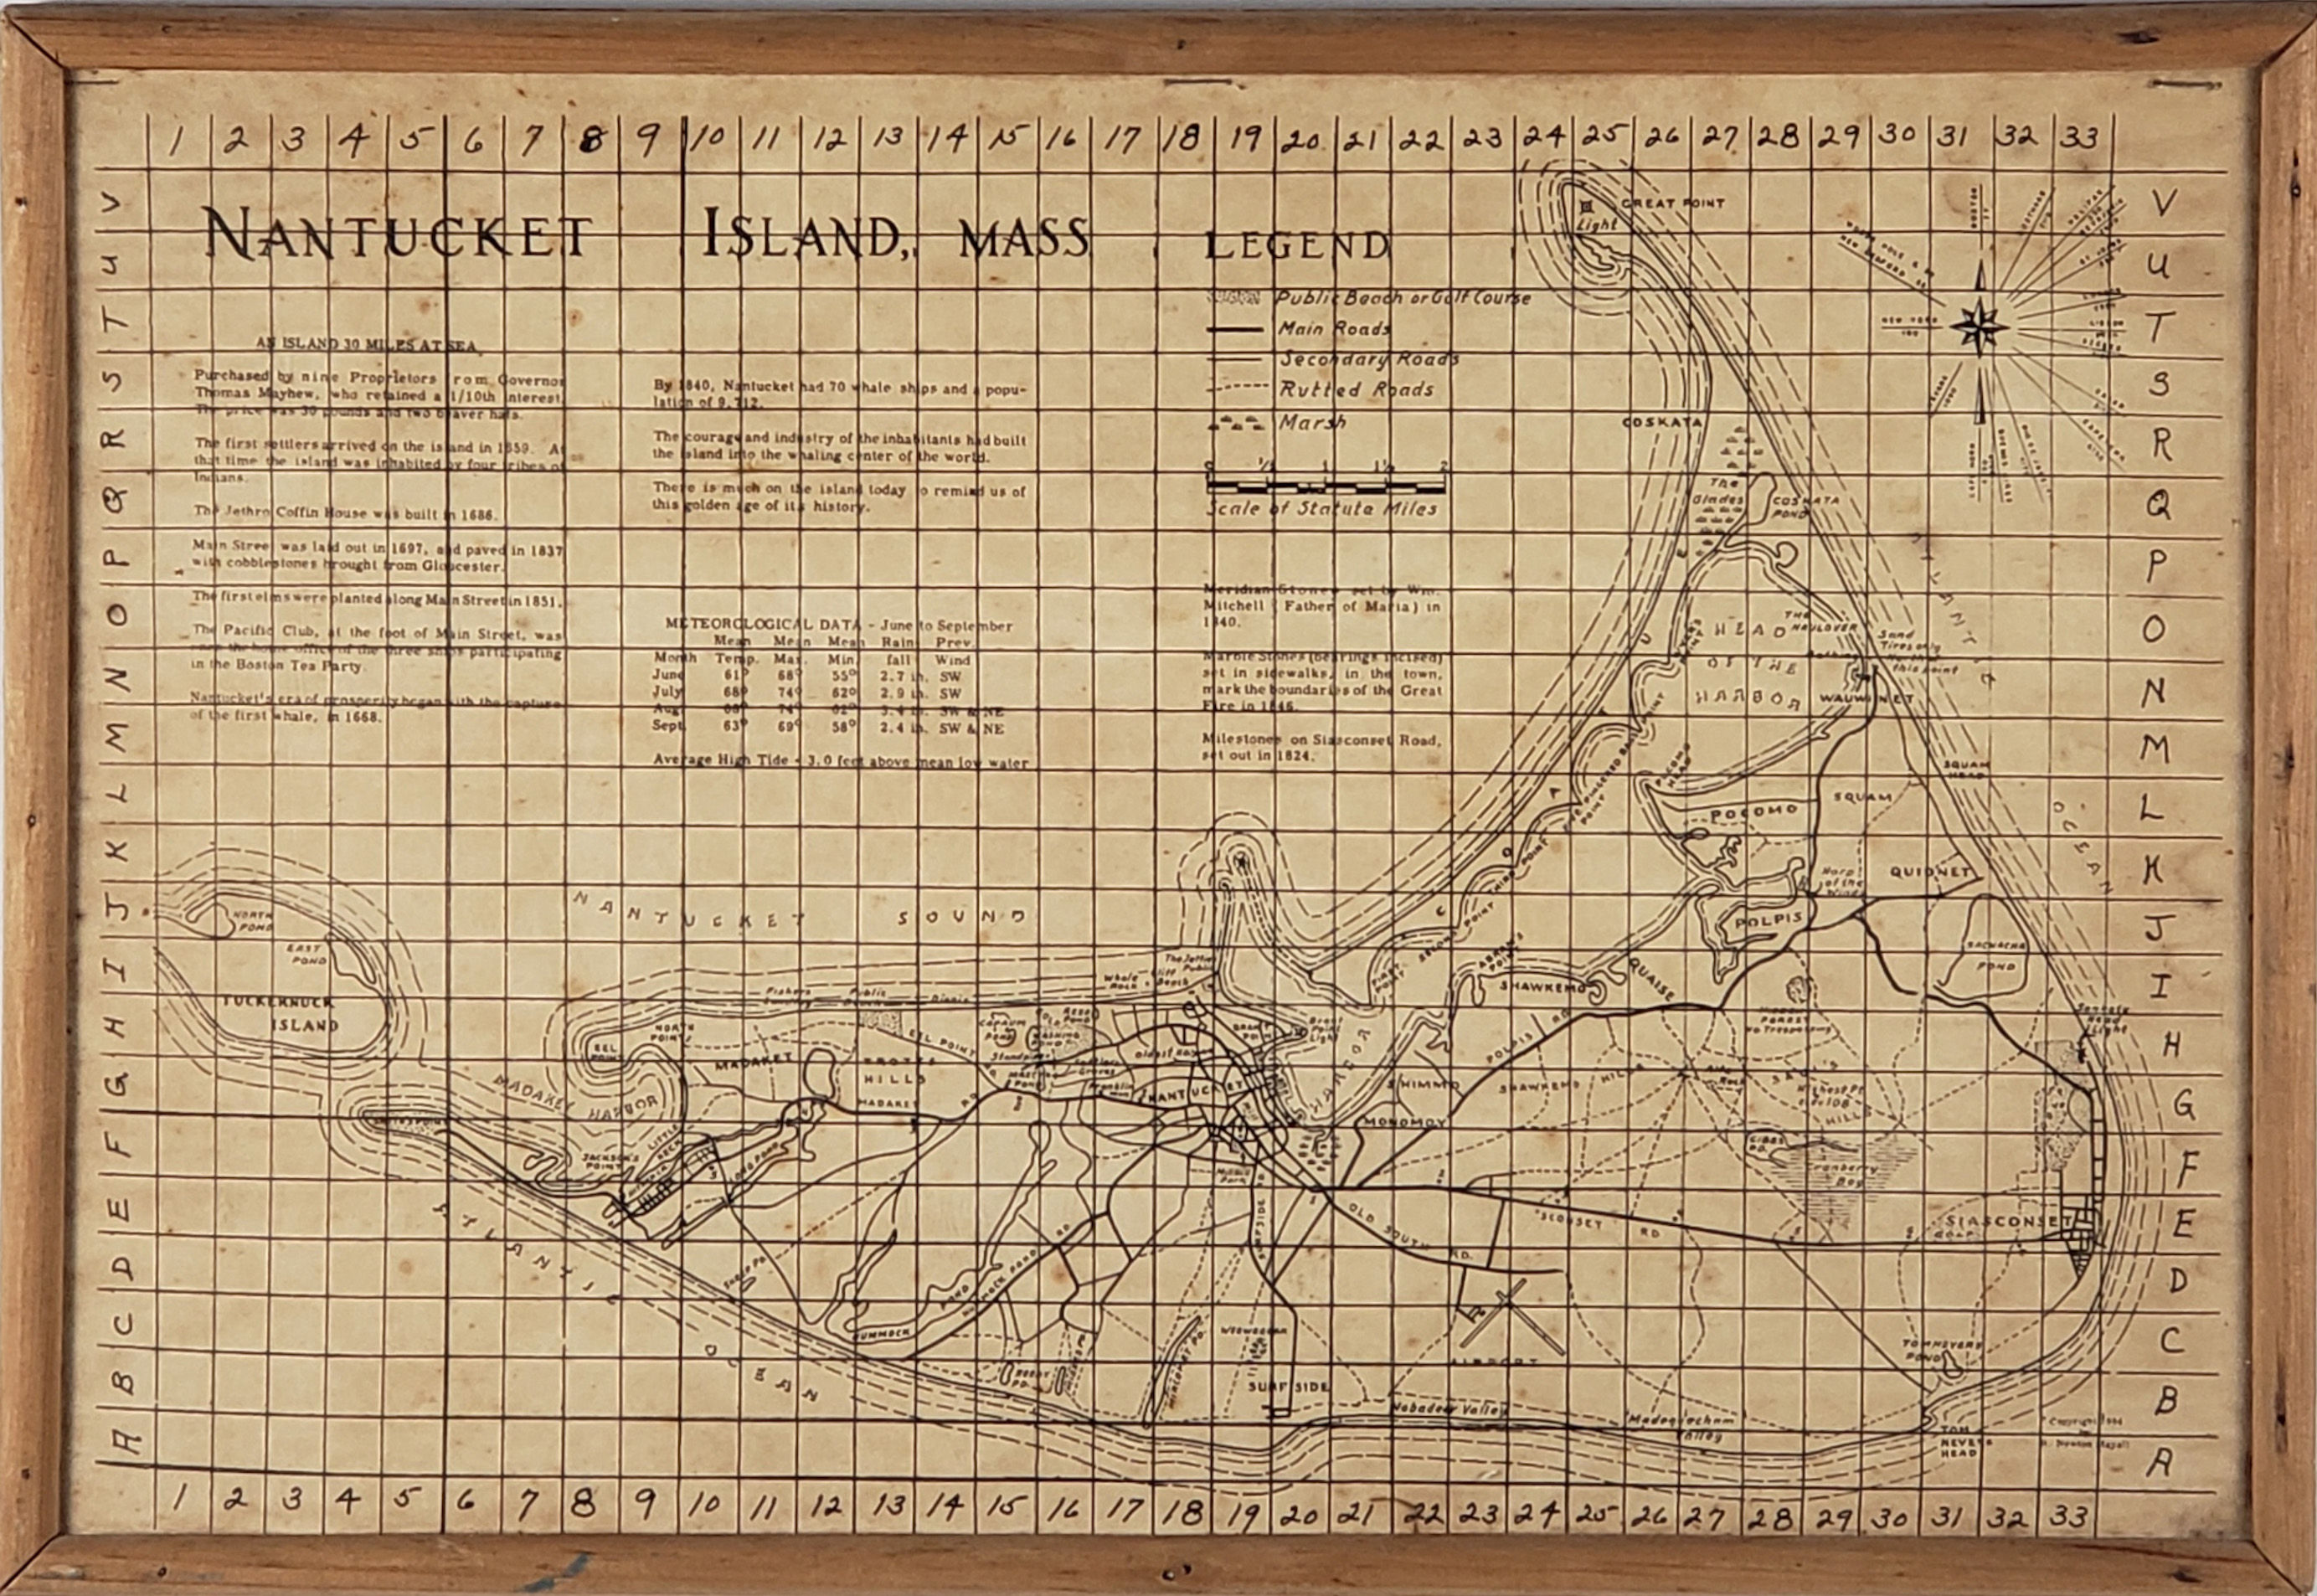 1 2 3 4 5 6 7 8 9 10 11 12 13 14 15 16 17 18 19 20 21 22 23 24 25 26 27 28 29 30 31 32 33
V
U
T
S
R
Q
P
O
N
M
L
K
J
I
H
G
F
E
D
C
B
A
NANTUCKET ISLAND, MASS
AN ISLAND 30 MILES AT SEA
Purchased by nine Proprietors from Governor
Thomas Mayhew, who retained a 1/10th interest.
The price was 30 pounds and two beaver hats.
The first settlers arrived on the island in 1659. At
that time the island was inhabited by four tribes of
Indians.
The Jethro Coffin House was built in 1686.
Main Street was laid out in 1697, and paved in 1837
with cobblestones brought from Gloucester.
The first elms were planted along Main Street in 1851.
The Pacific Club, at the foot of Main Street, was
once the home office of the three ships participating
in the Boston Tea Party.
Nantucket's era of prosperity began with the capture
of the first whale, in 1668.
By 1840, Nantucket had 70 whale ships and a popu-
lation of 9,712.
The courage and industry of the inhabitants had built
the island into the whaling center of the world.
There is much on the island today to remind us of
this golden age of its history.
METEOROLOGICAL DATA - June to September
Mean Mean Mean Rain Prev.
Month Temp. Max. Min. fall Wind
June 61° 68° 55° 2.7 in. SW
July 68° 74° 62° 2.9 in. SW
Aug 68° 74° 62° 3.4 in. SW & NE
Sept. 63° 69° 58° 2.4 in. SW & NE
Average High Tide - 3.0 feet above mean low water
LEGEND
Public Beach or Golf Course
Main Roads
Secondary Roads
Rutted Roads
Marsh
0 1/2 1 1 1/2 2
Scale of Statute Miles
Meridian Stones set by Wm.
Mitchell (Father of Maria) in
1840.
Marble Stones (bearings incised)
set in sidewalks, in the town,
mark the boundaries of the Great
Fire in 1846.
Milestones on Siasconset Road,
set out in 1824.
GREAT POINT
Light
NEW YORK
COSKATA
The
Glades
COSKATA
POND
ATLANTIC
OCEAN
THE
HAULOVER
HEAD
OF THE
HARBOR
Sand
Tires only
this point
WAUWINET
POCOMO
HEAD
SQUAM
HEAD
SQUAM
POCOMO
QUIDNET
POLPIS
SACHACHA
POND
FIRST
POINT
SECOND POINT
THIRD POINT
FIVE FINGERED
POINT
ABRAM'S
POINT
SHAWKEMO
QUAISE
NANTUCKET SOUND
NORTH
POND
EAST
POND
TUCKERNUCK
ISLAND
EEL
POINT
NORTH
POINT
Fishers
Landing
Public
Dionis
Whale
Rock
The Jetties
Cliff Public
Beach
EEL POINT
RD
MADAKET
TROTTS
HILLS
MADAKET
RD
MADAKET HARBOR
JACKSON'S
POINT
LITTLE
NECK
LONG POND
NANTUCKET
Brant
Point
Light
HARBOR
SHIMMO
MONOMOY
SHAWKEMO HILLS
POLPIS RD
SAUL'S
HILLS
Highest Pt.
GIBBS
PD.
Cranberry
Bog
Sankaty
Head
Light
SIASCONSET
GOLF
'SCONSET RD
OLD SOUTH RD.
SURFSIDE RD
HUMMOCK POND RD
HUMMOCK POND
WEEWEEDER
SURFSIDE
AIRPORT
Nobadeer Valley
Madequecham
Valley
TOM NEVERS
POND
TOM
NEVERS
HEAD
ATLANTIC OCEAN
1 2 3 4 5 6 7 8 9 10 11 12 13 14 15 16 17 18 19 20 21 22 23 24 25 26 27 28 29 30 31 32 33
V
U
T
S
R
Q
P
O
N
M
L
K
J
I
H
G
F
E
D
C
B
A